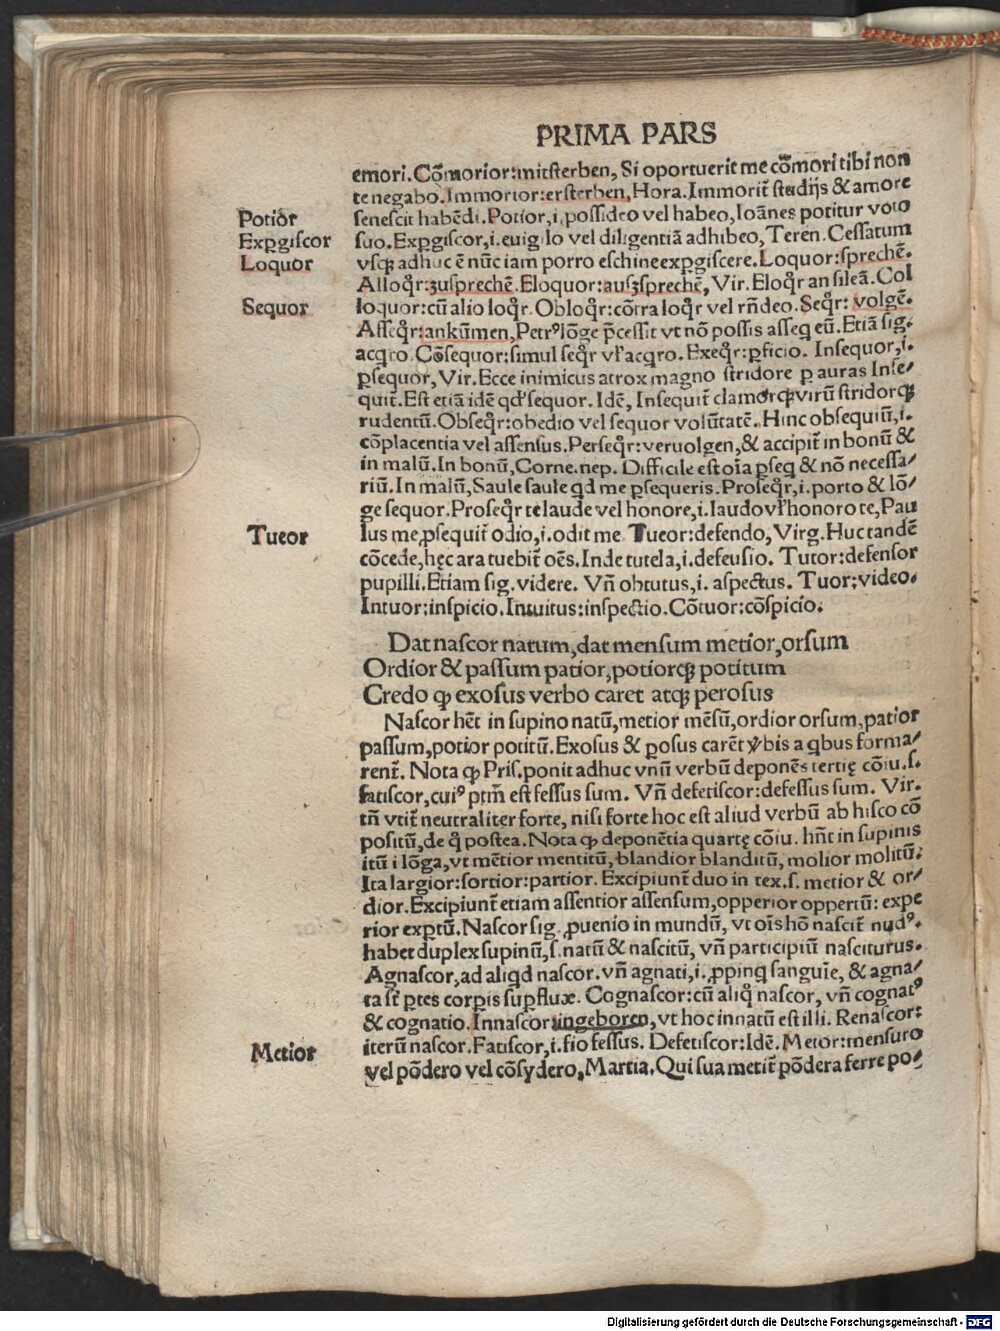 PRIMA PARS
emori. Cõmorior: mitsterben, Si oportuerit me cõmori tibi non
te negabo. Immorior: ersterben, Hora. Immorit᷑ studijs & amore
Potior
senescit habẽdi. Potior, i, possideo vel habeo, Ioãnes potitur voto
Expgiscor
suo. Exꝑgiscor, i. euigilo vel diligentiã adhibeo, Teren. Cessatum
Loquor
vsqꝫ adhuc ẽ nũc iam porro eschine exꝑgiscere. Loquor: sprechẽ.
Alloqr̃: zusprechẽ. Eloquor: auszsprechẽ, Vir. Eloqr̃ an sileã. Col
Sequor
loquor: cũ alio loqr̃. Obloqr̃: cõtra loqr̃ vel rñdeo. Seqr̃: volgẽ.
Asseqr̃: ankũmen, Petrꝰ lõge p̃cessit vt nõ possis asseq eũ. Etiã sig.
acqro. Cõsequor: simul seqr̃ vel acqro. Exeqr̃: ꝑficio. Insequor, i.
ꝑsequor, Vir. Ecce inimicus atrox magno stridore ꝑ auras Inse⸗
quit᷑. Est etiã idẽ qd' sequor. Idẽ, Insequit᷑ clamorqꝫ virũ stridorqꝫ
rudentũ. Obseqr̃: obedio vel sequor volũtatẽ. Hinc obsequiũ, i.
cõplacentia vel assensus. Perseqr̃: veruolgen, & accipit᷑ in bonũ &
in malũ. In bonũ, Corne. nep. Difficile est oĩa ꝑseq & nõ necessa⸗
riũ. In malũ, Saule saule qd me ꝑsequeris. Proseqr̃, i. porto & lõ⸗
ge sequor. Proseqr̃ te laude vel honore, i. laudo vel honoro te, Pau
Tueor
lus me ꝓsequit᷑ odio, i. odit me. Tueor: defendo, Virg. Huc tandẽ
cõcede, hęc ara tuebit᷑ oẽs. Inde tutela, i. defeusio. Tutor: defensor
pupilli. Etiam sig. videre. Vñ obtutus, i. aspectus. Tuor: video.
Intuor: inspicio. Intuitus: inspectio. Cõtuor: cõspicio.
Dat nascor natum, dat mensum metior, orsum
Ordior & passum patior, potiorqꝫ potitum
Credo ꝙ exosus verbo caret atqꝫ perosus
Nascor hẽt in supino natũ, metior mẽsũ, ordior orsum, patior
passum, potior potitũ. Exosus & ꝑosus carẽt v̾bis a qbus forma⸗
rent᷑. Nota ꝙ Pris. ponit adhuc vnũ verbũ deponẽs tertię cõiu. s.
fatiscor, cuiꝰ ptm̃ est fessus sum. Vñ defetiscor: defessus sum. Vir.
tñ vtit᷑ neutraliter forte, nisi forte hoc est aliud verbũ ab hisco cõ
positũ, de q̃ postea. Nota ꝙ deponẽtia quartę cõiu. hñt in supinis
itũ i lõga, vt mẽtior mentitũ, blandior blanditũ, molior molitũ.
Ita largior: sortior: partior. Excipiunt᷑ duo in tex. s. metior & or⸗
dior. Excipiunt᷑ etiam assentior assensum, opperior oppertũ: expe
rior exptũ. Nascor sig. ꝓuenio in mundũ, vt oĩs hõ nascit᷑ nudꝰ.
habet duplex supinũ, s. natũ & nascitũ, vñ participiũ nasciturus.
Agnascor, ad aliqd nascor. vñ agnati, i. ꝓpinq sanguĩe, & agna⸗
ta st̃ ꝑtes corpis supfluæ. Cognascor: cũ aliq̃ nascor, vñ cognatꝰ
& cognatio. Innascor: ingeboren, vt hoc innatũ est illi. Renascor:
Metior
iterũ nascor. Fatiscor, i. fio fessus. Defetiscor: Idẽ. Metor: mensuro
vel põdero vel cõsydero, Martia. Qui sua metit᷑ põdera ferre po⸗
Digitalisierung gefördert durch die Deutsche Forschungsgemeinschaft - DFG